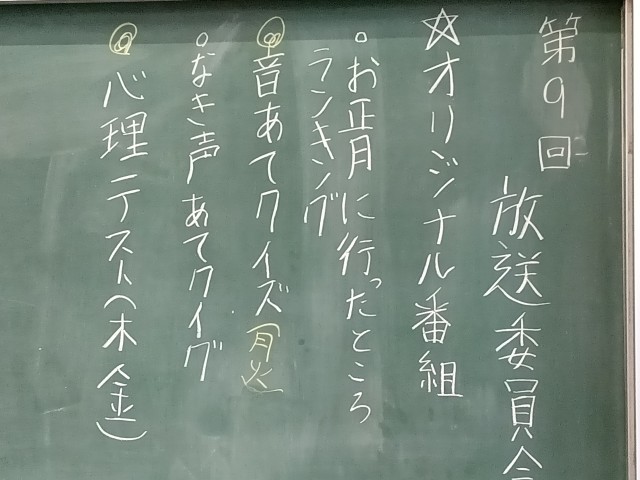 第9回
放送委員会
☆オリジナル番組
。お正月に行ったところ
ランキング
◎音あてクイズ(月火)
。なき声あてクイグ
◎心理テスト(木金)